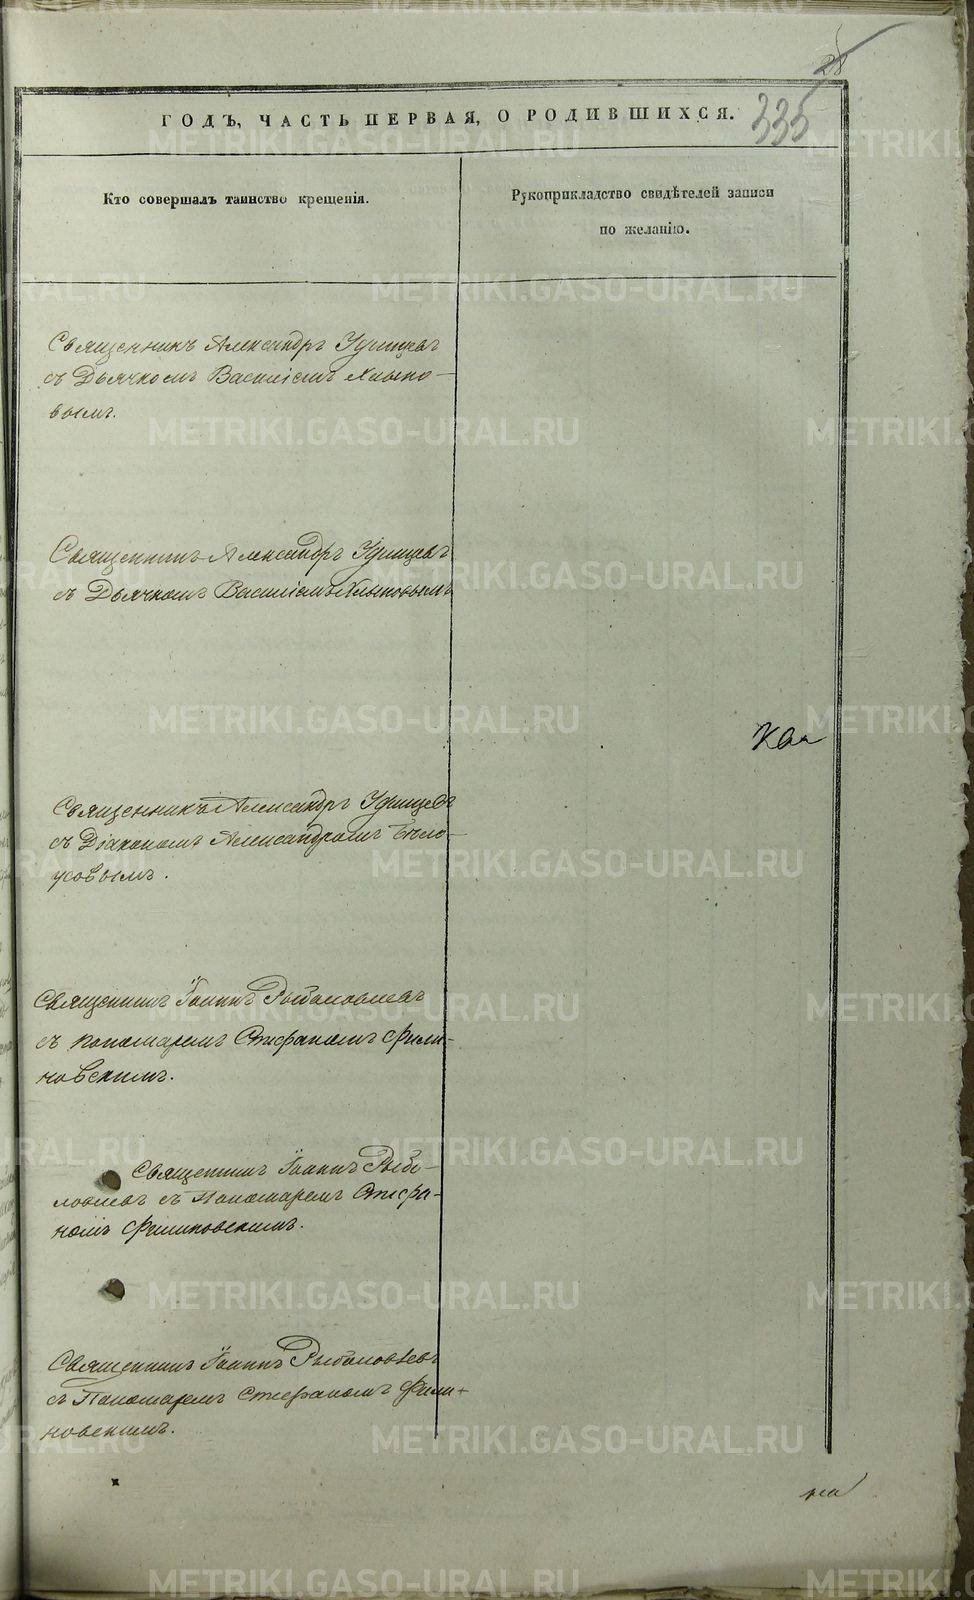 28
335
ГОДЪ, ЧАСТЬ ПЕРВАЯ, О РОДИВШИХСЯ.
Кто совершалъ таинство крещенія.
Рукоприкладство свидѣтелей записи
по желанію.
Священникъ Александръ Удинцевъ
съ Дьячкомъ Василіемъ Хлыно-
вымъ.
Священникъ Александръ Удинцевъ
съ Дьячкомъ Василіемъ Хлыновымъ
Священникъ Александръ Удинцевъ
съ Діакономъ Александромъ Бѣло-
усовымъ.
Священникъ Іоаннъ Рыболовлевъ
съ Пономаремъ Стефаномъ Фили-
новскимъ.
Священникъ Іоаннъ Рыбо-
ловлевъ съ Пономаремъ Стефа-
номъ Филиновскимъ.
Священникъ Іоаннъ Рыболовлевъ
съ Пономаремъ Стефаномъ Фили-
новскимъ.
METRIKI.GASO-URAL.RU